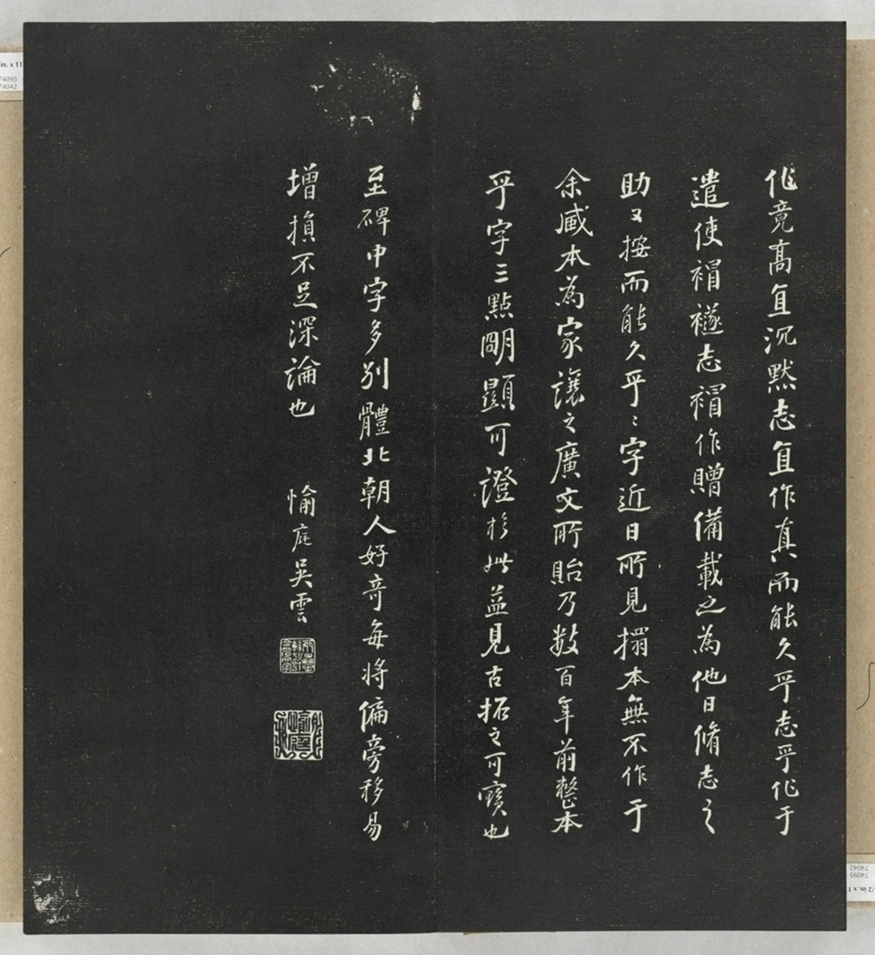 作竟高亶沉黙志亶作真而能久乎志乎作于
遣使襘襚志襘作贈備載之為他日脩志之
助又按而能久乎〻字近日所見搨本無不作于
余臧本為家讓之廣文所貽乃數百年前整本
乎字三點朙顯可證於此益見古拓之可寶也
至碑中字多別體北朝人好奇每將偏旁移易
增損不足深論也 愉庭吳雲